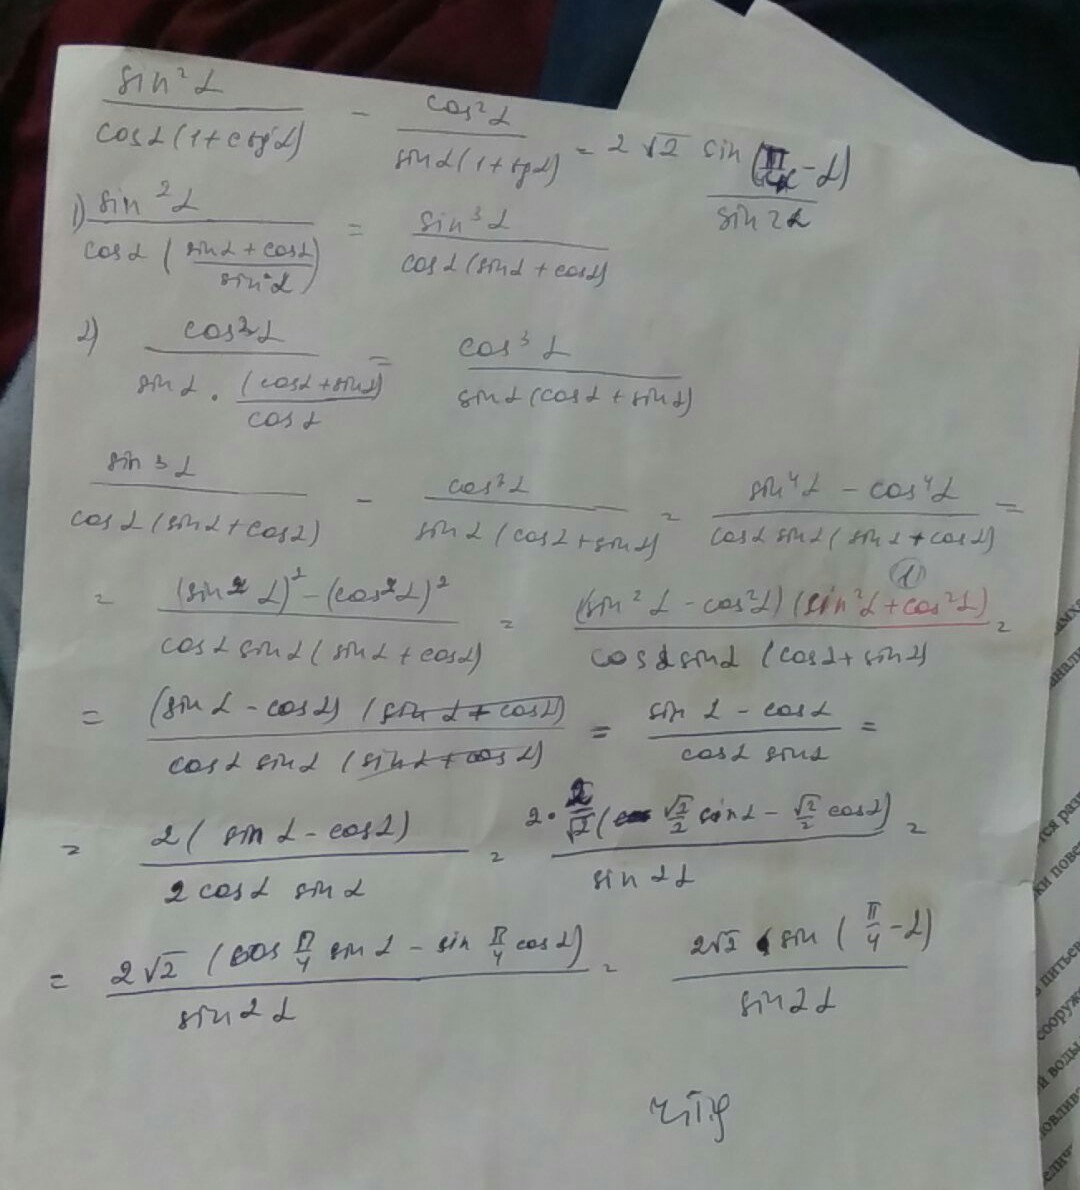 sin²α / cosα(1+ctgα) - cos²α / sinα(1+tgα) = 2√2 sin(π/4 - α) / sin2α
1) sin²α / cosα((sinα+cosα)/sinα) = sin³α / cosα(sinα+cosα)
2) cos²α / sinα·((cosα+sinα)/cosα) = cos³α / sinα(cosα+sinα)
sin³α / cosα(sinα+cosα) - cos³α / sinα(cosα+sinα) = sin⁴α - cos⁴α / cosα sinα(sinα+cosα) =
= (sin²α)² - (cos²α)² / cosα sinα(sinα+cosα) = (sin²α - cos²α)(sin²α+cos²α) / cosα sinα(cosα+sinα) =
1
= (sinα - cosα)(sinα+cosα) / cosα sinα(sinα+cosα) = sinα - cosα / cosα sinα =
= 2(sinα - cosα) / 2cosα sinα = 2·2/√2(√2/2 sinα - √2/2 cosα) / sin2α =
= 2√2(cos π/4 sinα - sin π/4 cosα) / sin2α = 2√2 sin(π/4 - α) / sin2α
ч.т.д
анали
тся раз
ки пове
питьев
сооруж
й воды